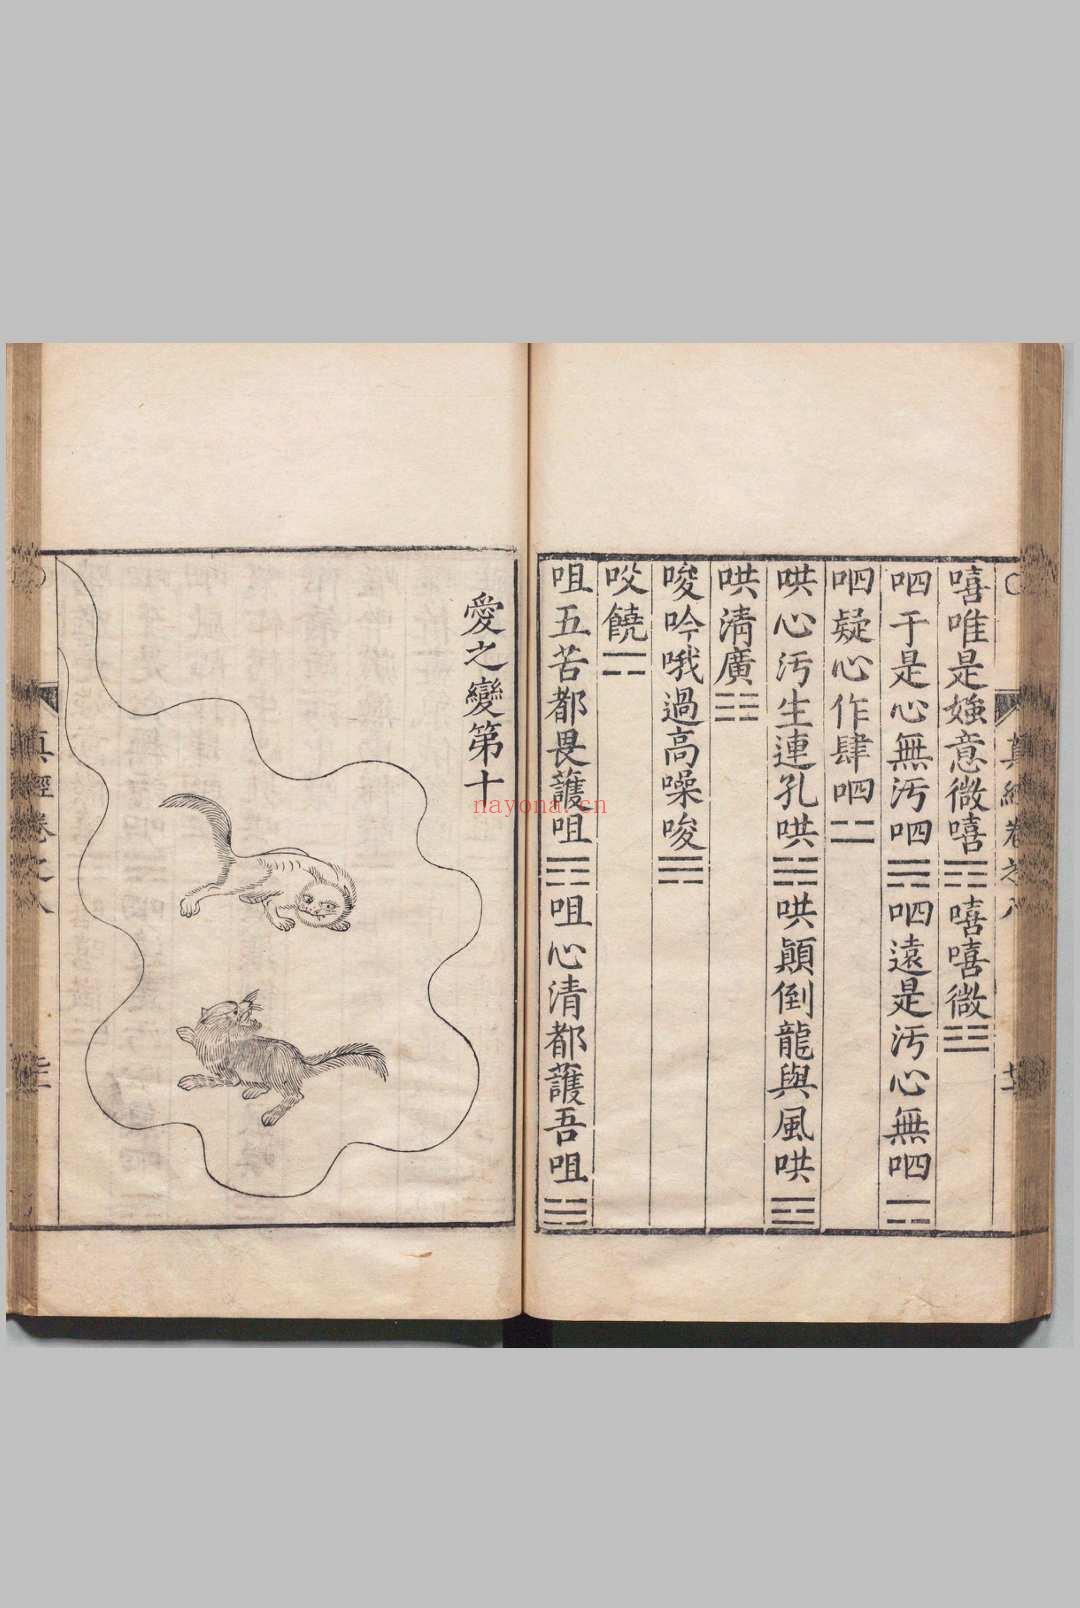 真經卷之八
嘻唯是㛴意微嘻䷁嘻嘻微☳
呬于是心無污呬☴呬遠是污心無呬
呬疑心作肆呬
哄心污生連孔哄哄顛倒龍與風哄
哄清廣☷
唆吟哦過高噪唆
咬饒
咀五苦都畏䕶咀咀心清都䕶吾咀
愛之變第十
真經卷之八
nayona.cn